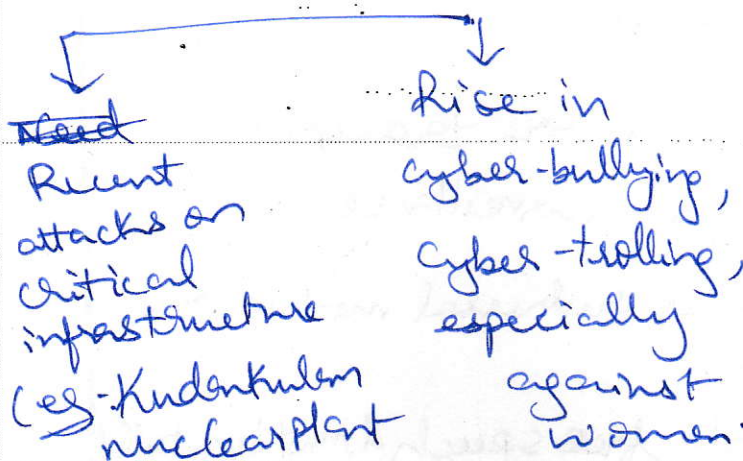 Recent
attacks on
critical
infrastructure
(eg - Kudankulam
nuclear plant
Rise in
cyber-bullying,
cyber-trolling,
especially
against
women.